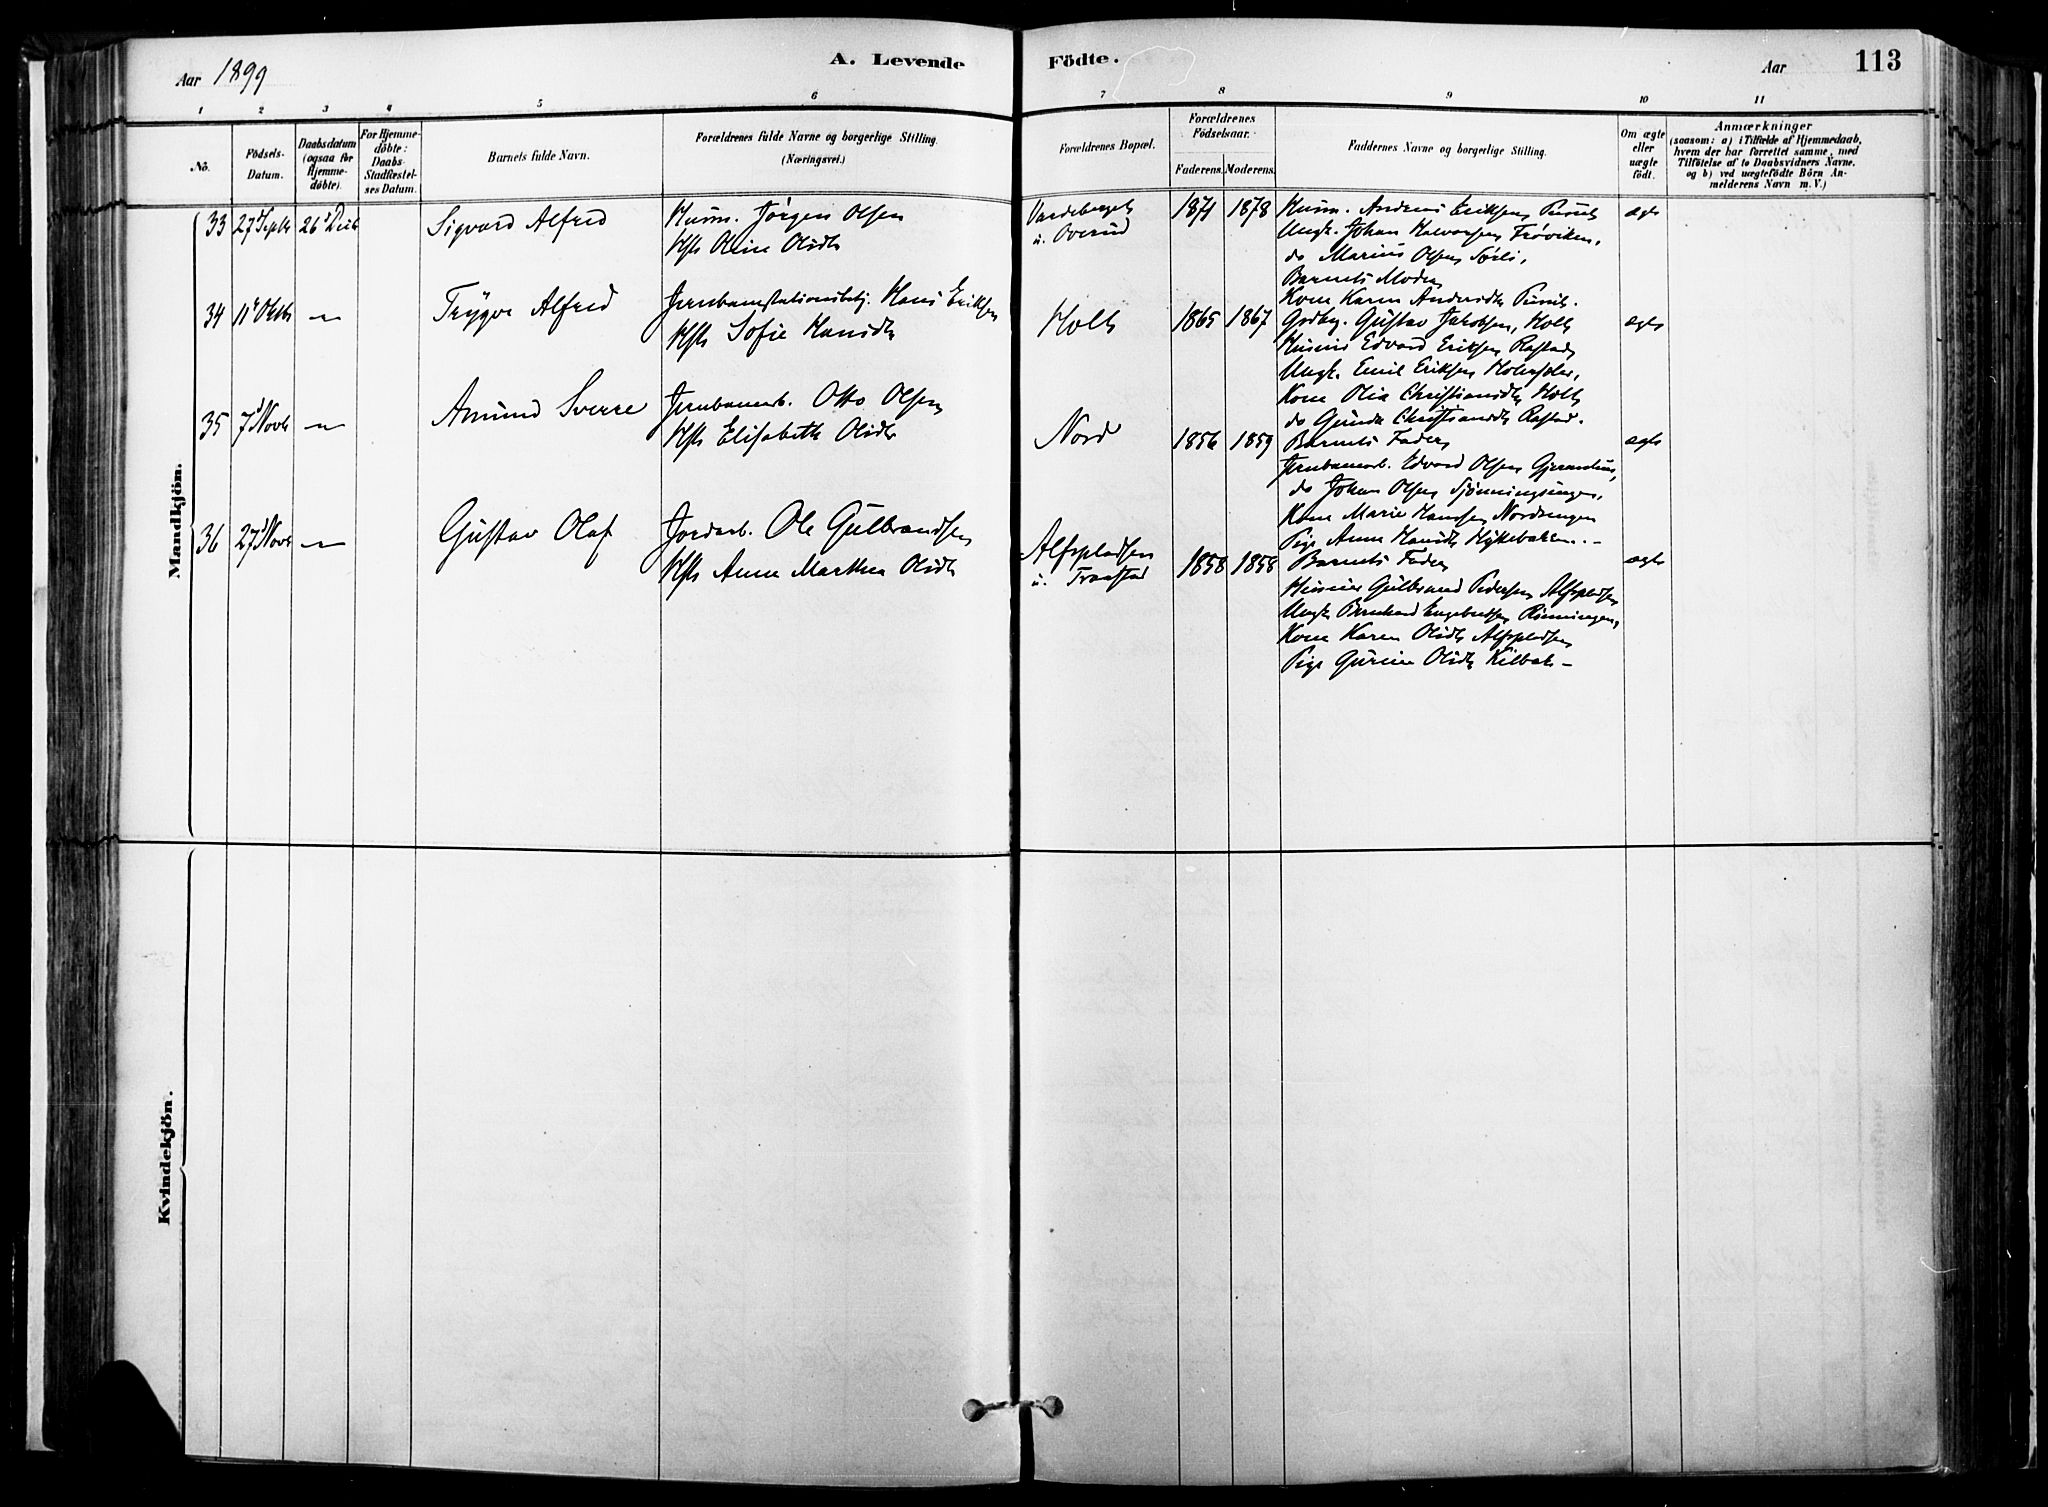 Aar 1899
A. Levende Födte.
Aar
113
1 2 3 4 5 6 7 8 9 10 11
No.
Födsels-Datum.
Daabsdatum (ogsaa for Hjemmedöbte).
For Hjemmedöbte: Daabs-Stadfæstelses Datum.
Barnets fulde Navn.
Forældrenes fulde Navne og borgerlige Stilling. (Næringsvei.)
Forældrenes Bopæl.
Forældrenes Födselsaar.
Faderens. Moderens.
Faddernes Navne og borgerlige Stilling.
Om ægte eller uægte födt.
Anmærkninger
(saasom: a) i Tilfælde af Hjemmedaab,
hvem der har forrettet samme, med
Tilföielse af to Daabsvidners Navne,
og b) ved uægtefödte Börn An-
melderens Navn m. V.)
Mandkjön.
33 27d Septbr 26d Decb Sigvard Alfred Husm. Jørgen Olsen
Hst Oline Olsdt
u. Overud 1871 1878 Husm. Andreas Eriksen ægte
Ungk. Johan Halvorsen Frøviken,
do Marius Olsen Sørli,
Barnets Moder
Kone Karen Andersdt
34 11t Oktb — Trygve Alfred Jernbanestationsbetj. Hans Eriksen
Hst Sofie Hansdt
Holt 1865 1867 Gdbr. Gustav Jakobsen, Holt ægte
Husm Edvard Eriksen Rastad,
Ungk. Emil Eriksen
Kone Olia Christiansdt Holt
do Gunda Christiansdt Rastad.
35 7d Novb — Amund Sverre Jernbanearb. Otto Olsen
Hst Elisabeth Olsdt
Nord 1856 1859 Barnets Fader, ægte
Jernbanearb. Edvard Olsen
do Johan Olsen
Kone Marie Hansen Nordengen
Pige Anna Hansdt
36 27d Novb — Gustav Olaf Jordarb. Ole Gulbrandsen
Hst Anne Marthea Olsdt
Alfspladsen
u. Traastad 1858 1858 Barnets Fader ægte
Husm Gulbrand Pedersen Alfspladsen
Ungk Bernhard Engebretsen Rønningen,
Kone Karen Olsdt Alfspladsen
Pige Gurine Olsdt Kilbak —
Kvindekjön.